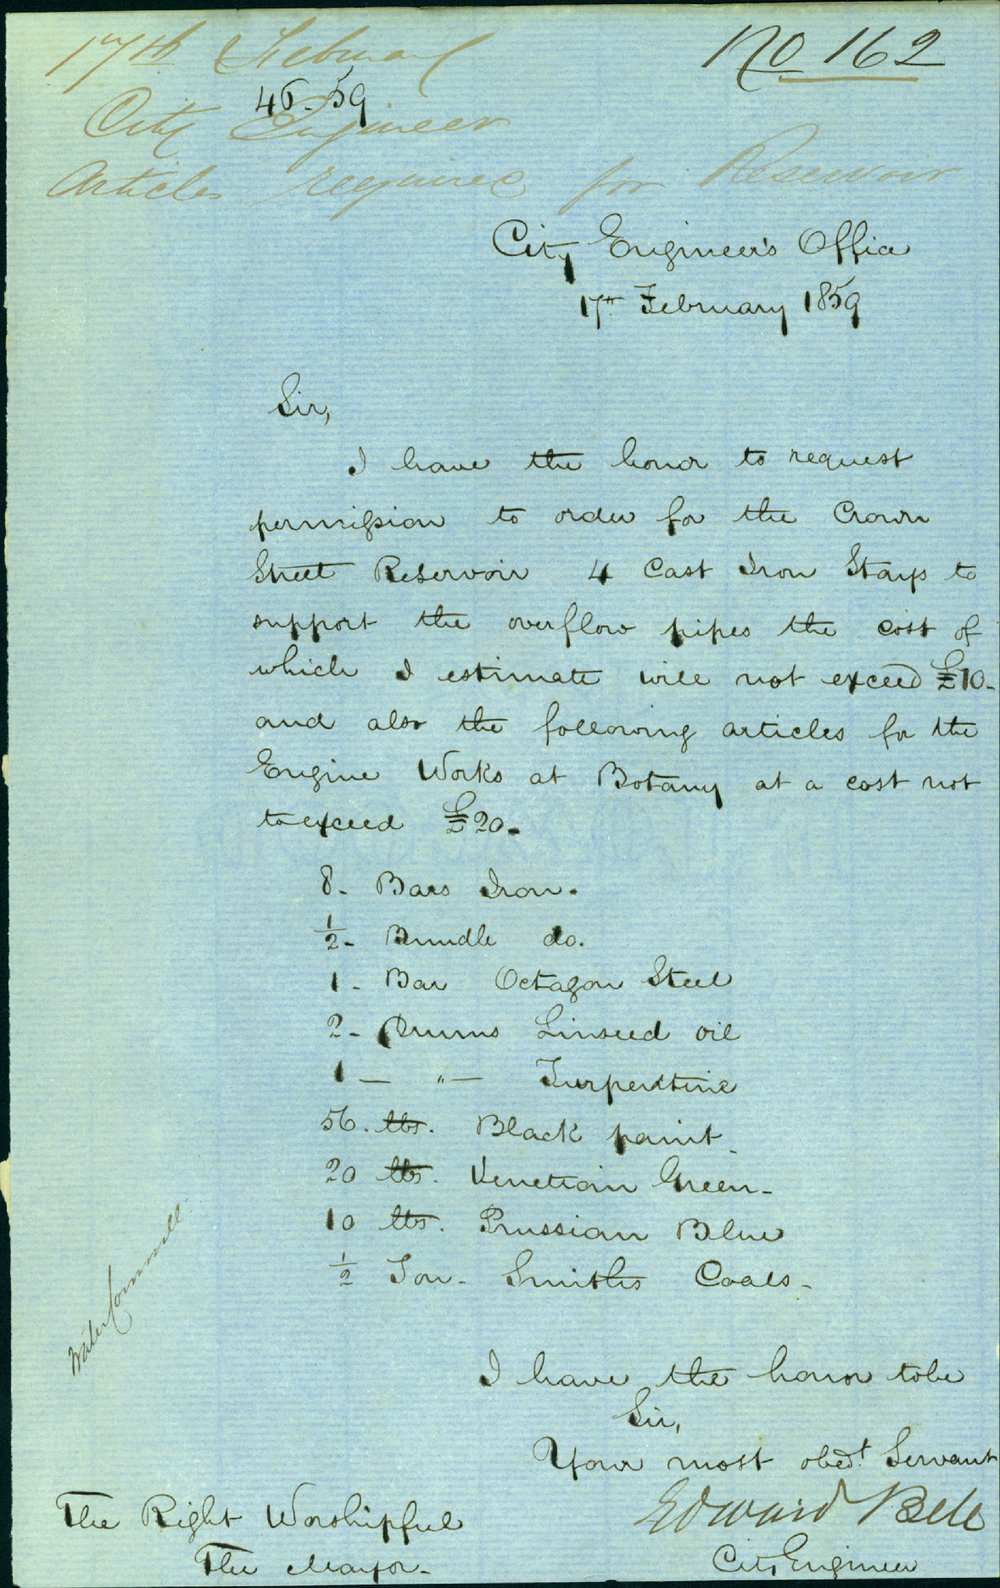 17th February
No 162
46-59
City Engineer
Articles required for Reservoir
City Engineer's Office
17th February 1859
Sir,
I have the honor to request
permission to order for the Crown
Street Reservoir 4 Cast Iron Stays to
support the overflow pipes the cost of
which I estimate will not exceed £10-
and also the following articles for the
Engine Works at Botany at a cost not
to exceed £20-
8- Bars Iron-
1/2- Bundle do.
1- Bar Octagon Steel
2- Drums Linseed oil
1 — " — Turpentine
56. lbs. Black paint
20 lbs. Venetian Green-
10 lbs. Prussian Blue
1/2 Ton- Smiths Coals-
Water Committee
I have the honor to be
Sir,
Your most obedt. Servant
Edward Bell
City Engineer
The Right Worshipful
The Mayor-